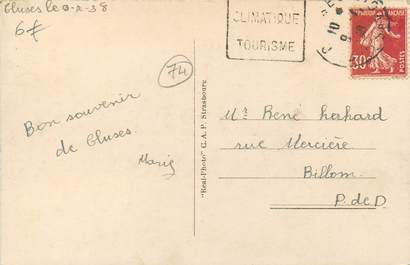 Cluses le 9-2-38
6f
CLIMATIQUE
TOURISME
10
30
POSTES
74
Bon souvenir
de Cluses.
"Real-Photo" C.A.P. Strasbourg
Mr René
rue Mercière
Billom
P. de D.